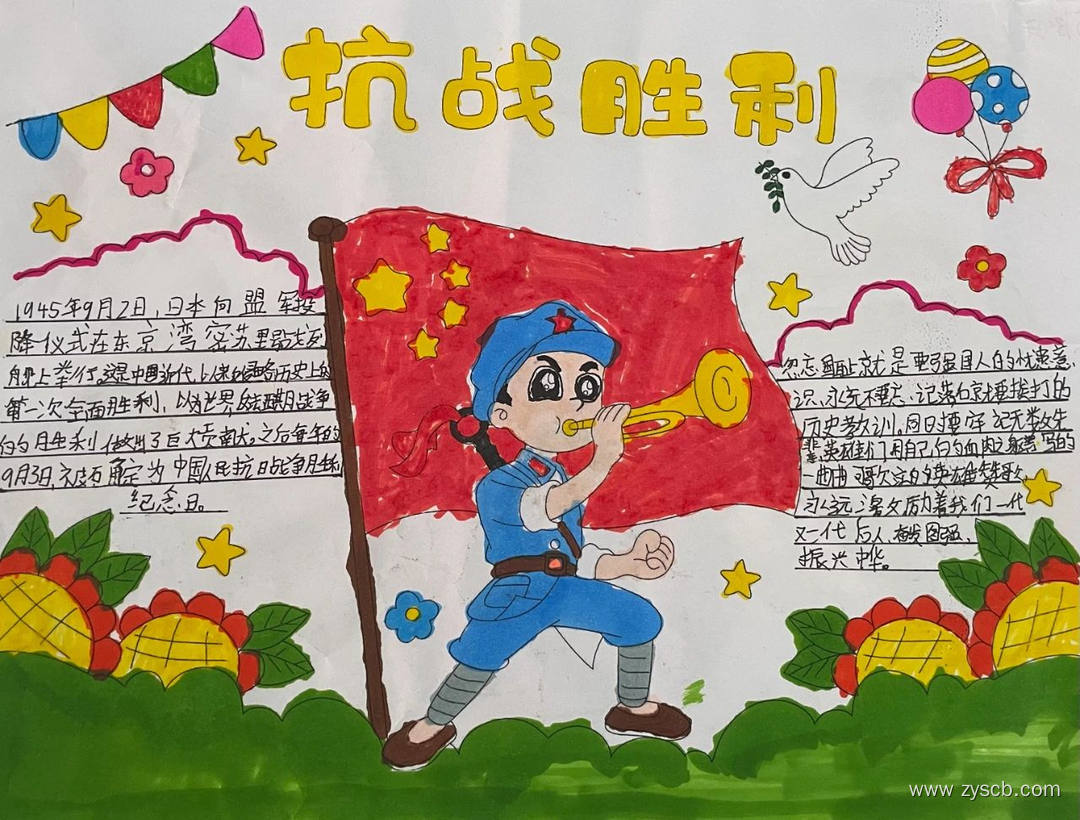 抗战胜利
1945年9月2日，日本向盟军投
降仪式在东京湾密苏里号战列
舰上举行。这是中国近代以来
历史上的
第一次全面胜利，
战争
的胜利做出了巨大贡献，之后每年的
9月3日，被确定为中国人民抗日战争胜利
纪念日。
勿忘国耻就是要强国人的忧患意
识，永远不要忘记落后就要挨打的
历史教训。同时要牢记无数先
辈英雄们用自己的血肉之躯谱写的
一曲曲
英雄赞歌
永远激励着我们一代
又一代后人，奋发图强，
振兴中华。
www.zyscb.com